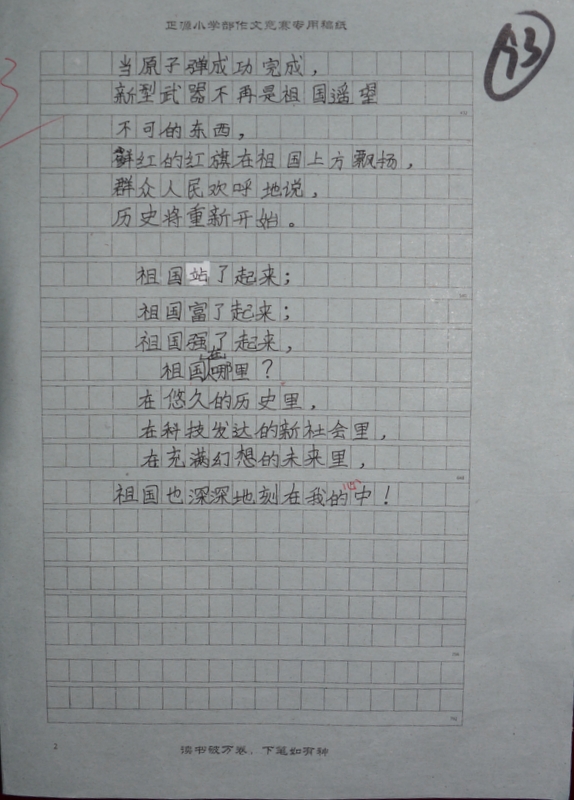 正源小学部作文竞赛专用稿纸
93
当原子弹成功完成，
新型武器不再是祖国遥望
不可的东西，
鲜红的红旗在祖国上方飘扬，
群众人民欢呼地说，
历史将重新开始。
祖国站了起来；
祖国富了起来；
祖国强了起来，
祖国在哪里？
在悠久的历史里，
在科技发达的新社会里，
在充满幻想的未来里，
祖国也深深地刻在我的心中！
2
读书破万卷，下笔如有神